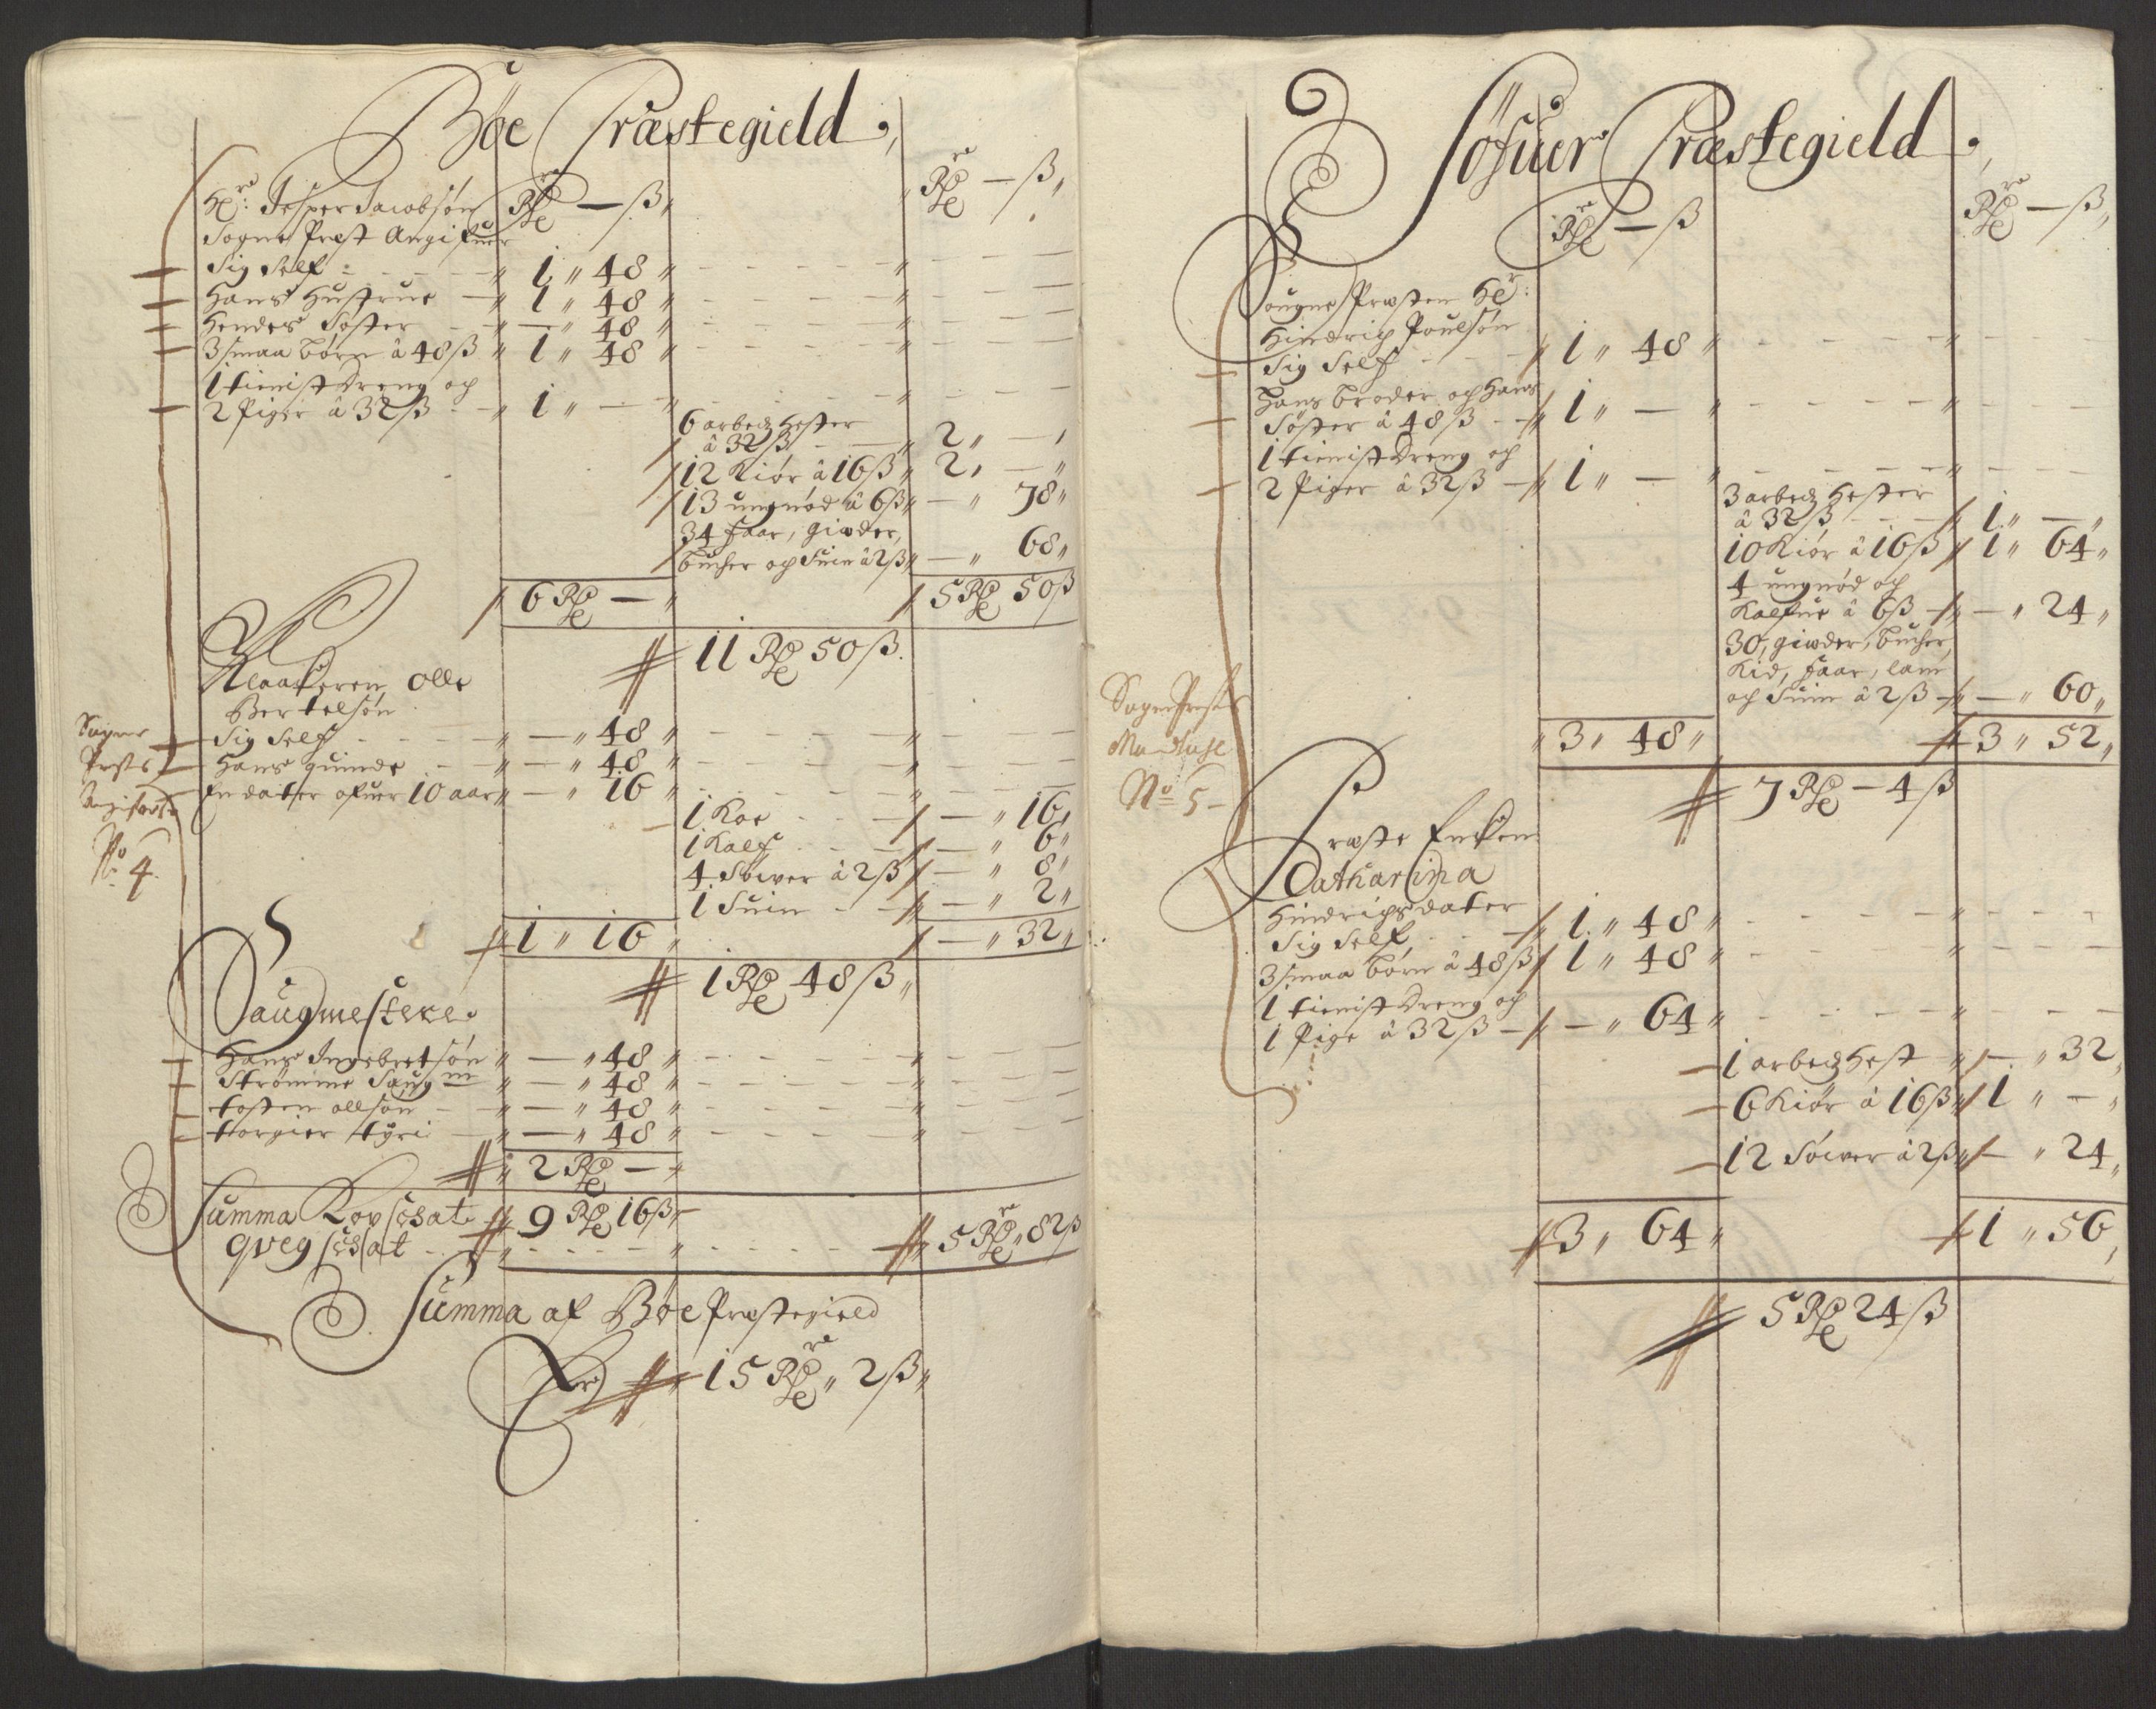 Bøe Præstegield,
Rdr — ß, Rdr — ß,
Hr: Jesper Jacobsøn
Sogne Præst Angifuer
Sig Self - - - 1 „ 48 „
Hans Hustrue — 1 „ 48 „
Hendes Søster - — „ 48 „
3 smaa børn à 48 ß „ 1 „ 48 „
1 tienist Dreng och
2 Piger à 32 ß - - „ 1 „ —
6 arbeds hester
à 32 ß - - 2 „ — „
12 Kiør à 16 ß „ 2 „ — „
13 ungnød à 6 ß „ — „ 78 „
34 faar, giæder,
bucher och Suin à 2 ß „ — „ 68 „
6 Rd — 5 Rd 50 ß
11 Rd 50 ß.
Klockeren Olle
Bertelsøn
Sig Self - - - „ — „ 48 „
Hans quinde - „ — „ 48 „
En dater ofuer 10 aar „ — „ 16 „
1 Koe - - — „ 16 „
1 Kalf - - — „ 6 „
4 Søwer à 2 ß — „ 8 „
1 Suin - - — „ 2 „
1 „ 16 — „ 32 „
1 Rd 48 ß „
Sogne
Prests
No 4.
Saugmestere
Hans Ingebretsøn „ — „ 48 „
Strømme Saug m „ — „ 48 „
tosten ollsøn - „ — „ 48 „
torgier tyri — „ — „ 48 „
2 Rd —
Summa Kopskat 9 Rd 16 ß
qvegskat - - 5 Rdr „ 82 ß
Summa af Bøe Præstegield
Er 15 Rdr „ 2 ß „
Søfuer Præstegield,
Rdr — ß Rdr — ß,
Sougne Præsten Hr:
Hindrich Poulsøn
Sig Self - - 1 „ 48 „
Hans broder och Hans
Søster à 48 ß - 1 „ —
1 tienist Dreng och
2 Piger à 32 ß — 1 „ —
3 arbeds hester
à 32 ß - - 1 „ — „
10 Kiør à 16 ß 1 „ 64 „
4 ungnød och
Kalfue à 6 ß — „ 24 „
30, giæder, bucher,
Kid, faar, lam
och Suin à 2 ß — „ 60 „
3 „ 48 „ 3 „ 52 „
7 Rd — 4 ß
Sogne Prestens
Mandtahl
No 5 -
Præste Enken
Catharina
Hindrichsdater
Sig Self - - 1 „ 48 „
3 smaa børn à 48 ß 1 „ 48 „
1 tienist Dreng och
1 Pige à 32 ß — — „ 64 „
1 arbeds hest — „ 32 „
6 Kiør à 16 ß „ 1 „ — „
12 Søwer à 2 ß „ — „ 24 „
3 „ 64 „ 1 „ 56 „
5 Rd 24 ß